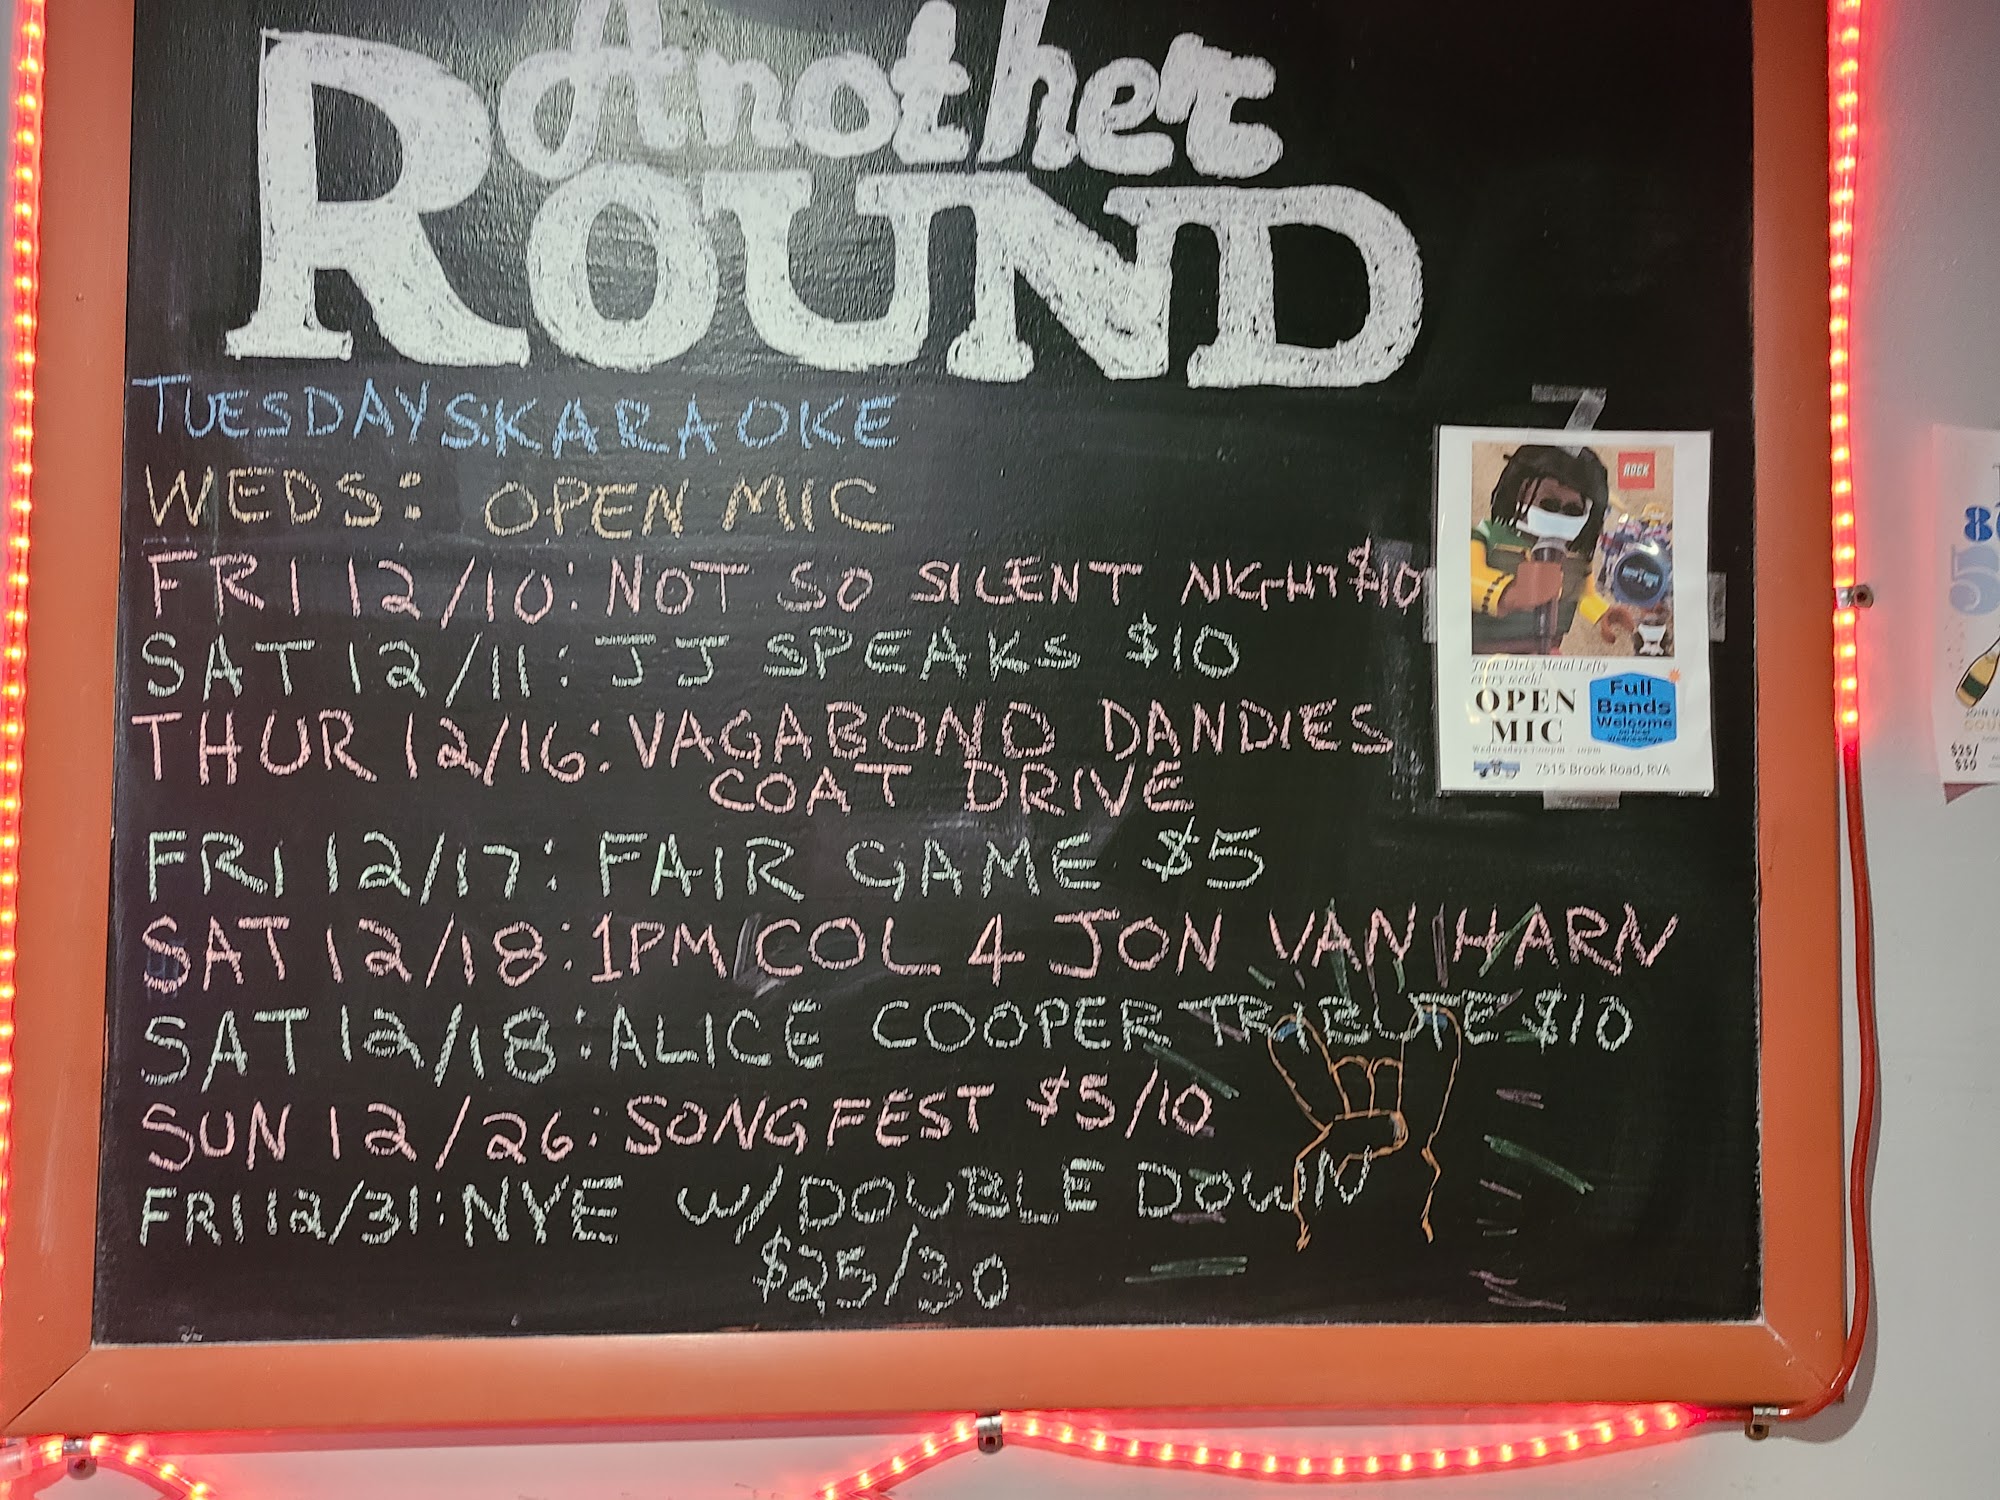 Another
ROUND
TUESDAYS: KARAOKE
WEDS: OPEN MIC
FRI 12/10: NOT SO SILENT NIGHT $10
SAT 12/11: JJ SPEAKS $10
THUR 12/16: VAGABOND DANDIES
COAT DRIVE
FRI 12/17: FAIR GAME $5
SAT 12/18: 1PM COL 4 JON VAN HARN
SAT 12/18: ALICE COOPER TRIBUTE $10
SUN 12/26: SONGFEST $5/10
FRI 12/31: NYE W/DOUBLE DOWN
$25/30
ROCK
Dirty Metal Lefty
every week!
OPEN
MIC
Full
Bands
Welcome
on first
Wednesdays
Wednesdays 7:00pm - 10pm
7515 Brook Road, RVA
$25/
$30